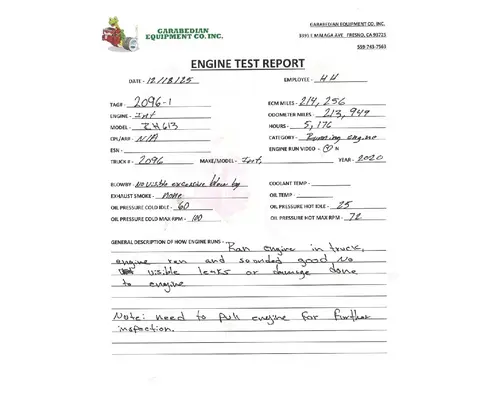 GARABEDIAN
EQUIPMENT CO. INC.
GARABEDIAN EQUIPMENT CO, INC.
MALAGA AVE FRESNO, CA 93725
559-743-7563
ENGINE TEST REPORT
DATE - 12/18/25
EMPLOYEE - H H
TAG# - 2096-1
ECM MILES - 214,256
ENGINE - Int
ODOMETER MILES - 213,949
MODEL -
HOURS - 5,176
CPL/ARR - N/A
CATEGORY - Running engine
ESN -
ENGINE RUN VIDEO - Y N
TRUCK # - 2096
MAKE/MODEL - Int
YEAR - 2020
BLOWBY - No visible excessive blow by
COOLANT TEMP -
EXHAUST SMOKE - None
OIL TEMP -
OIL PRESSURE COLD IDLE - 60
OIL PRESSURE HOT IDLE - 25
OIL PRESSURE COLD MAX RPM - 100
OIL PRESSURE HOT MAX RPM - 72
GENERAL DESCRIPTION OF HOW ENGINE RUNS - Ran engine in truck,
engine ran and sounded good No
visible leaks or damage done
to engine
Note: need to pull engine for further
inspection.